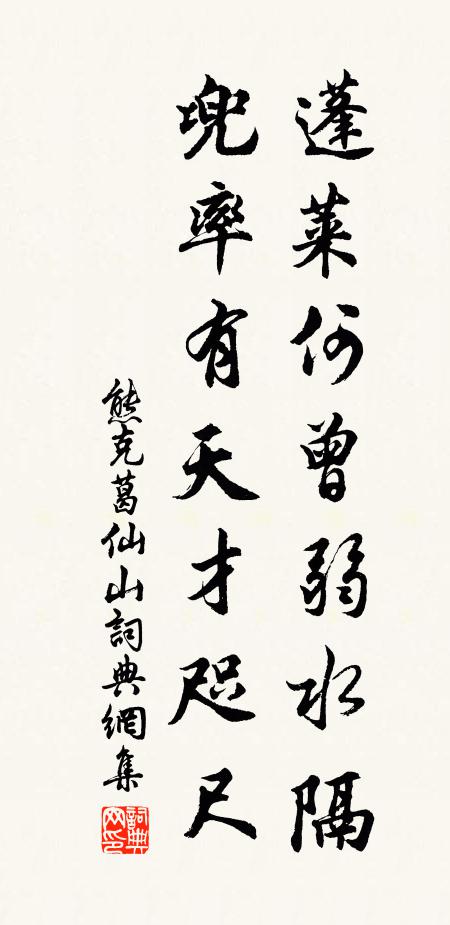 蓬莱何曾弱水隔
兜率有天才咫尺
熊克葛仙山詞典網集
詞典網印